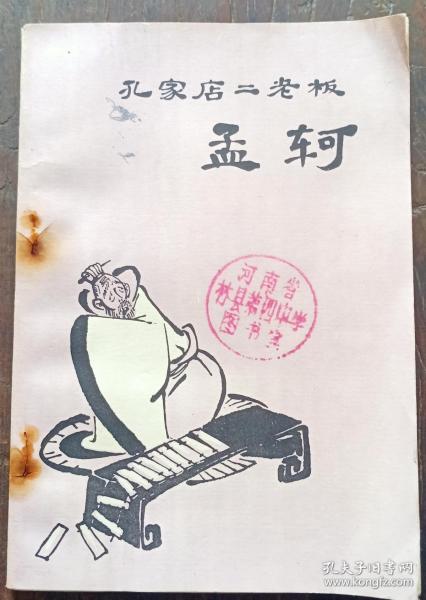 孔家店二老板
孟轲
河南省
林县第四中学
图书室
孔夫子旧书网
www.kongfz.com